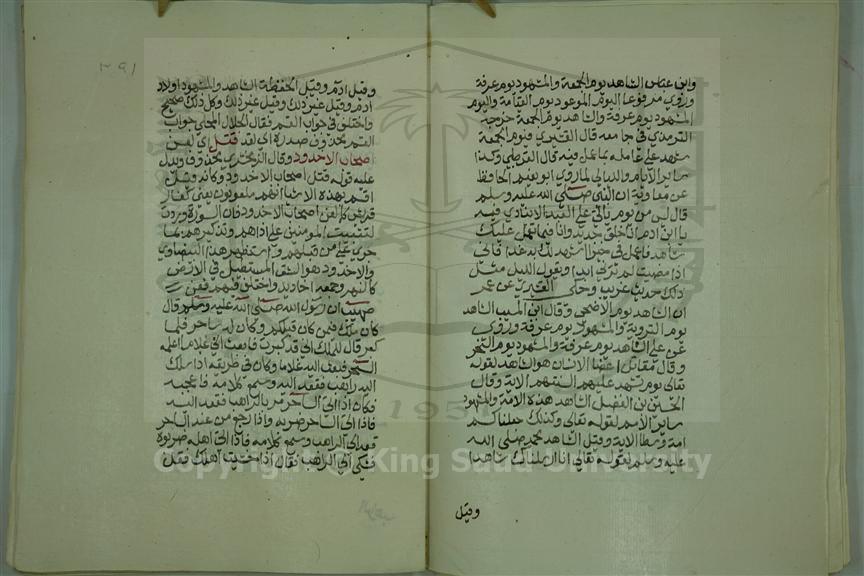 وابن عباس الشاهد يوم الجمعة والمشهود يوم عرفة
وروى مرفوعا اليوم الموعود يوم القيامة واليوم
المشهود يوم عرفة والشاهد يوم الجمعة خرجه
الترمذي في جامعه قال القشيري فيوم الجمعة
يشهد على عامله بما عمل فيه قال القرطبي وكذا
سائر الايام والليالي لما روى ابو نعيم الحافظ
عن معاوية ان النبي صلى الله عليه وسلم
قال ليس من يوم ياتي على العبد الا ينادى فيه
يا ابن ادم انا خلق جديد وانا فيما تعمل عليك
شاهد فاعمل في خيرا اشهد لك به غدا فاني
اذا مضيت لم ترني ابدا ويقول الليل مثل
ذلك حديث غريب وحكى القشيري عن عمر
ان الشاهد يوم الاضحى وقال ابن المسيب الشاهد
يوم التروية والمشهود يوم عرفة وروى
عن علي الشاهد يوم عرفة والمشهود يوم النحر
وقال مقاتل اعضا الانسان هو الشاهد لقوله
تعالى يوم تشهد عليهم السنتهم الاية وقال
الحسين بن الفضل الشاهد هذه الامة والمشهود
سائر الامم لقوله تعالى وكذلك جعلناكم
امة وسطا الاية وقيل الشاهد محمد صلى الله
عليه وسلم لقوله تعالى انا ارسلناك شاهدا
وقيل
٣٩١
وقيل ادم وقيل الحفظة الشاهد والمشهود اولاد
ادم وقيل غير ذلك وقيل غير ذلك وكل ذلك صحيح
واختلف في جواب القسم فقال الجلال المحلي جواب
القسم محذوف صدره اي لقد قتل اي لعن
اصحاب الاخدود وقال الزمخشري محذوف ويدل
عليه قوله قتل اصحاب الاخدود وكانه قيل
اقسم بهذه الاشيا انهم ملعونون يعني كفار
قريش كما لعن اصحاب الاخدود فان السورة وردت
لتثبيت المومنين على اذاهم وتذكيرهم بما
جرى على من قبلهم واستظهر هذا البيضاوي
والاخدود هو الشق المستطيل في الارض
كالنهر وجمعه اخاديد واختلف فيهم فعن
صهيب ان رسول الله صلى الله عليه وسلم قال
كان ملك فيمن كان قبلكم وكان له ساحر فلما
كبر قال للملك اني قد كبرت فابعث الي غلاما اعلمه
السحر فبعث اليه غلاما وكان في طريقه اذا سلك
اليه راهب فقعد اليه وسمع كلامه فاعجبه
فكان اذا اتى الساحر مر بالراهب فقعد اليه
فاذا اتى الساحر ضربه واذا رجع من عند الساحر
قعد الى الراهب وسمع كلامه فاذا اتى اهله ضربوه
فشكى الى الراهب فقال اذا خشيت اهلك فقل
Copyright © King Saud University
1957